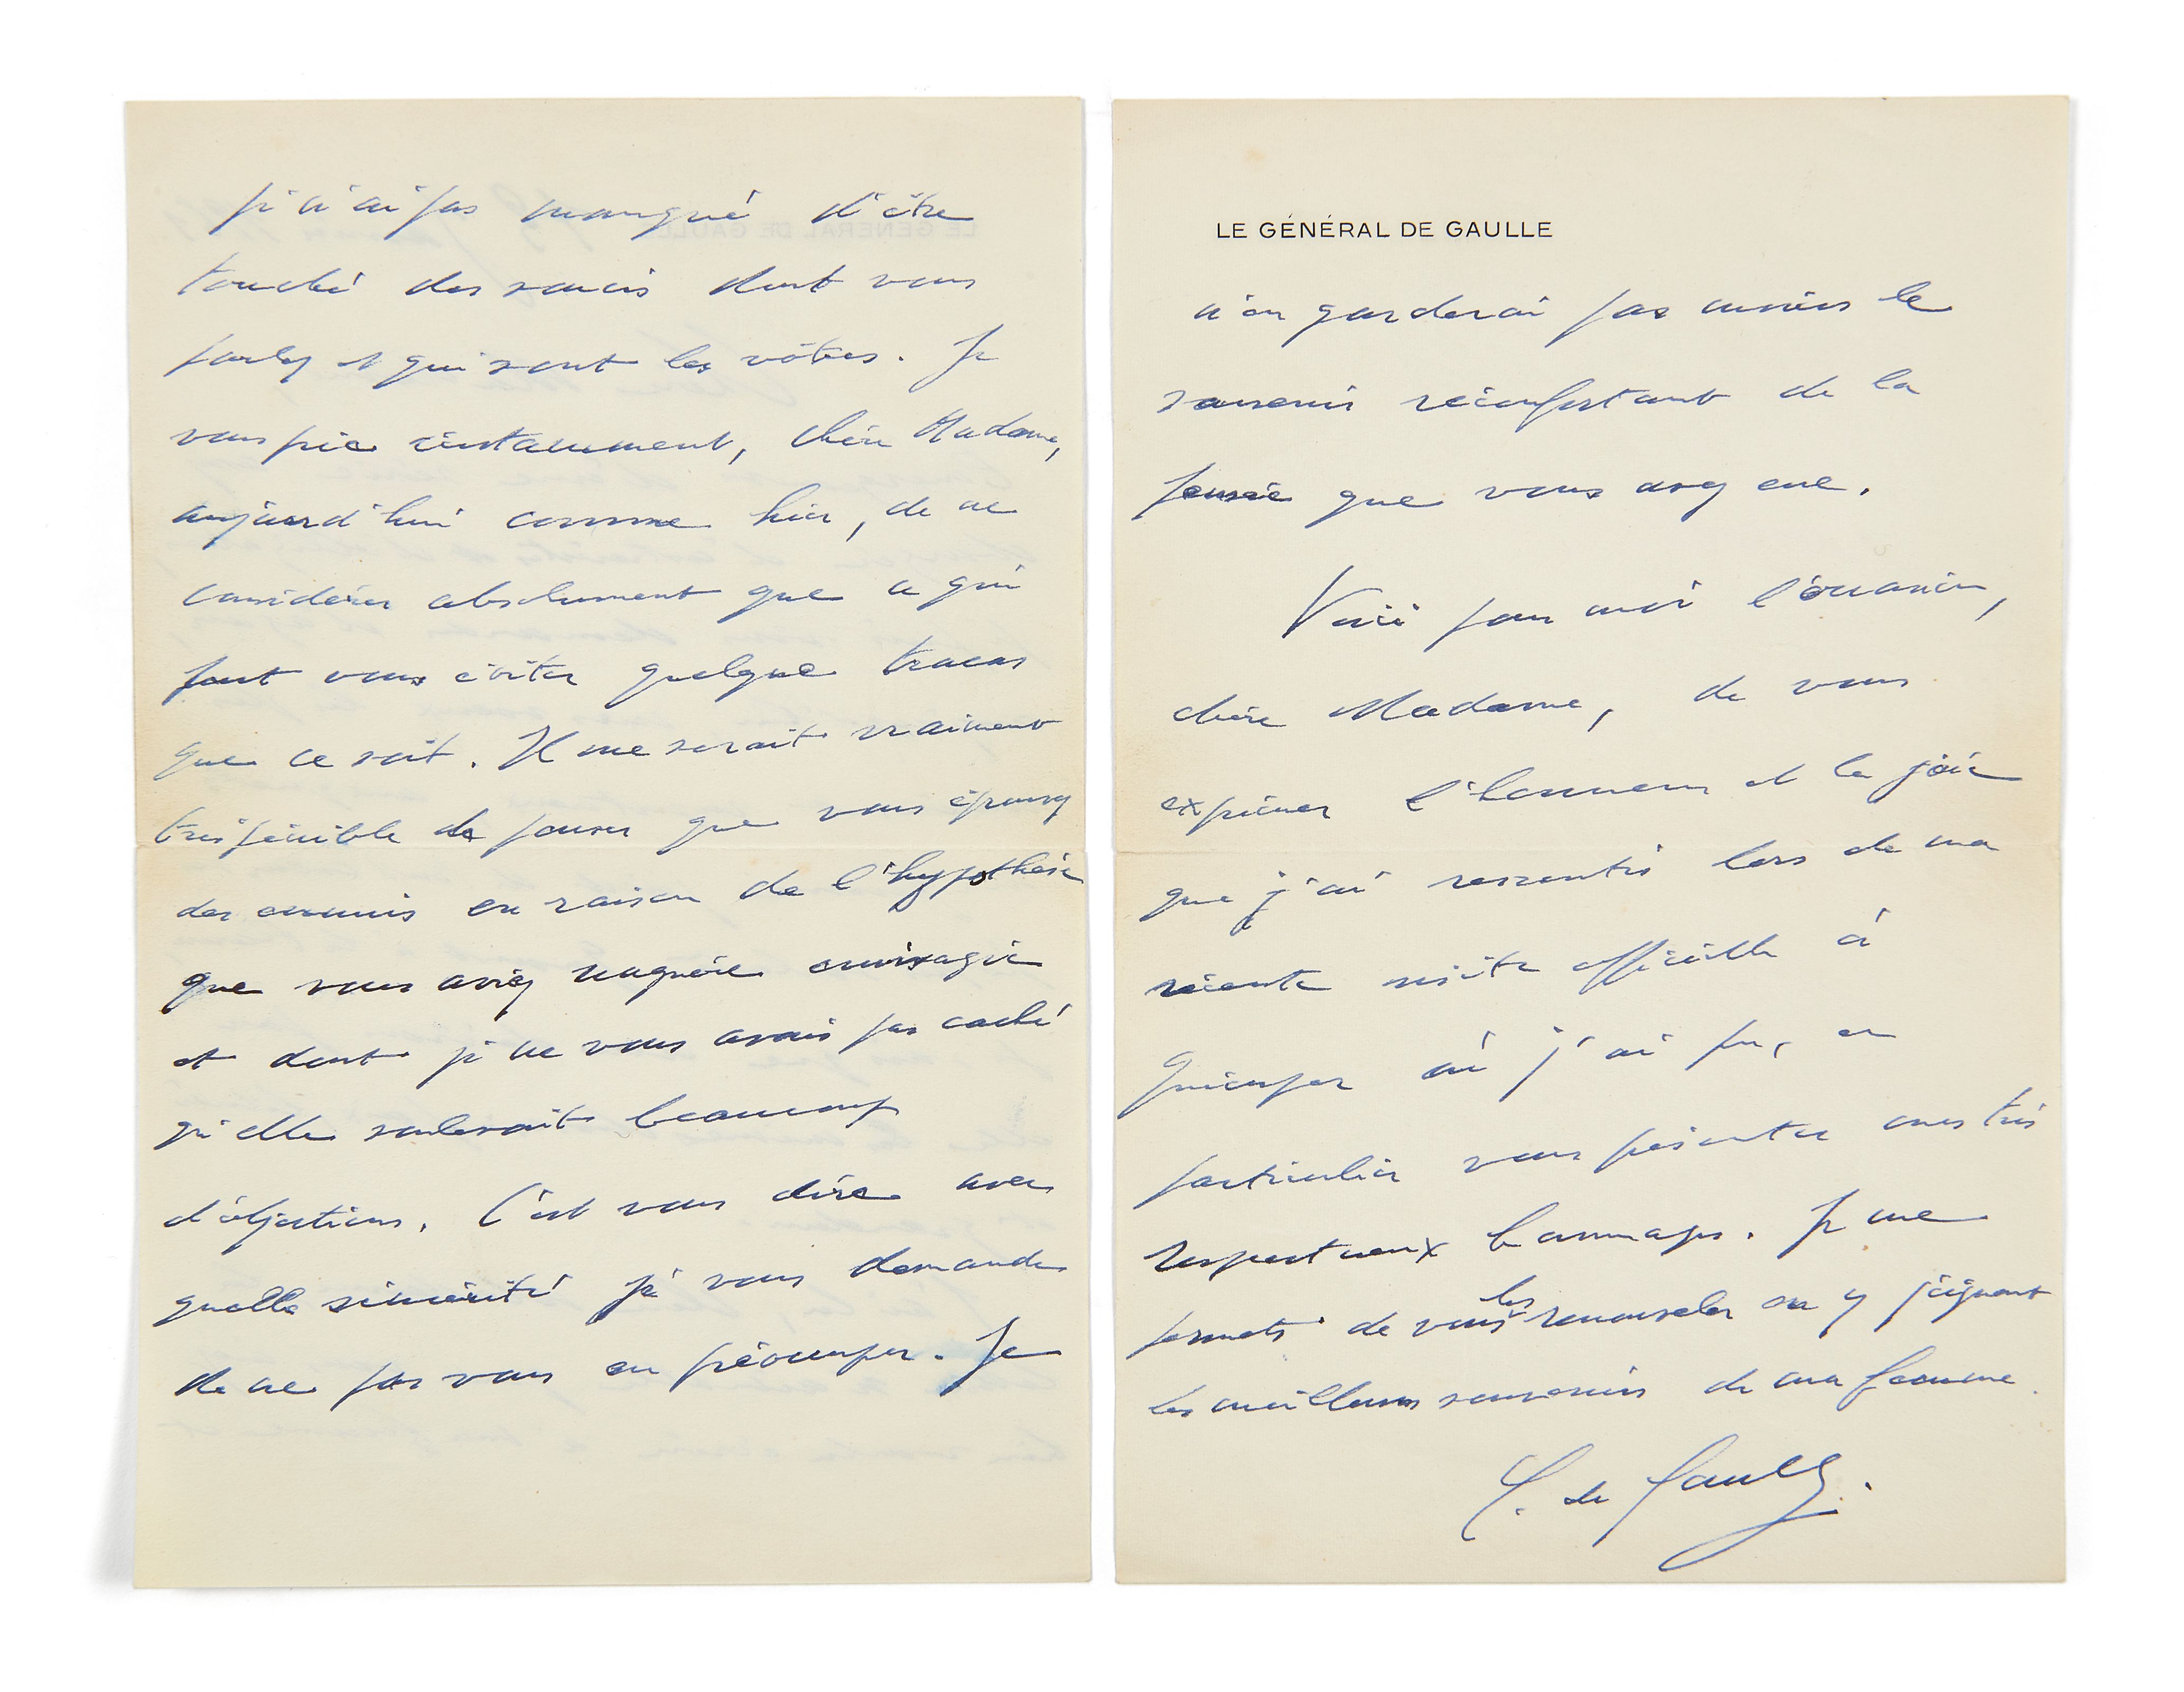 je n'ai pas manqué d'être
touché des soucis dont vous
parlez et qui sont les vôtres. Je
vous prie instamment, chère Madame,
aujourd'hui comme hier, de ne
considérer absolument que ce qui
peut vous éviter quelque tracas
que ce soit. Il me serait vraiment
très pénible de penser que vous éprouvez
des ennuis en raison de l'hypothèse
que vous aviez naguère envisagée
et dont je ne vous avais pas caché
qu'elle soulevait beaucoup
d'objections. C'est vous dire avec
quelle sincérité je vous demande
de ne pas vous en préoccuper. Je
LE GÉNÉRAL DE GAULLE
n'en garderai pas moins le
souvenir réconfortant de la
pensée que vous avez eue.
Voici pour moi l'occasion,
chère Madame, de vous
exprimer l'honneur et la joie
que j'ai ressentis lors de ma
récente visite officielle à
Quimper où j'ai pu, en
particulier vous présenter mes très
respectueux hommages. Je me
permets de vous les renouveler en y joignant
les meilleurs souvenirs de ma femme.
C. de Gaulle.